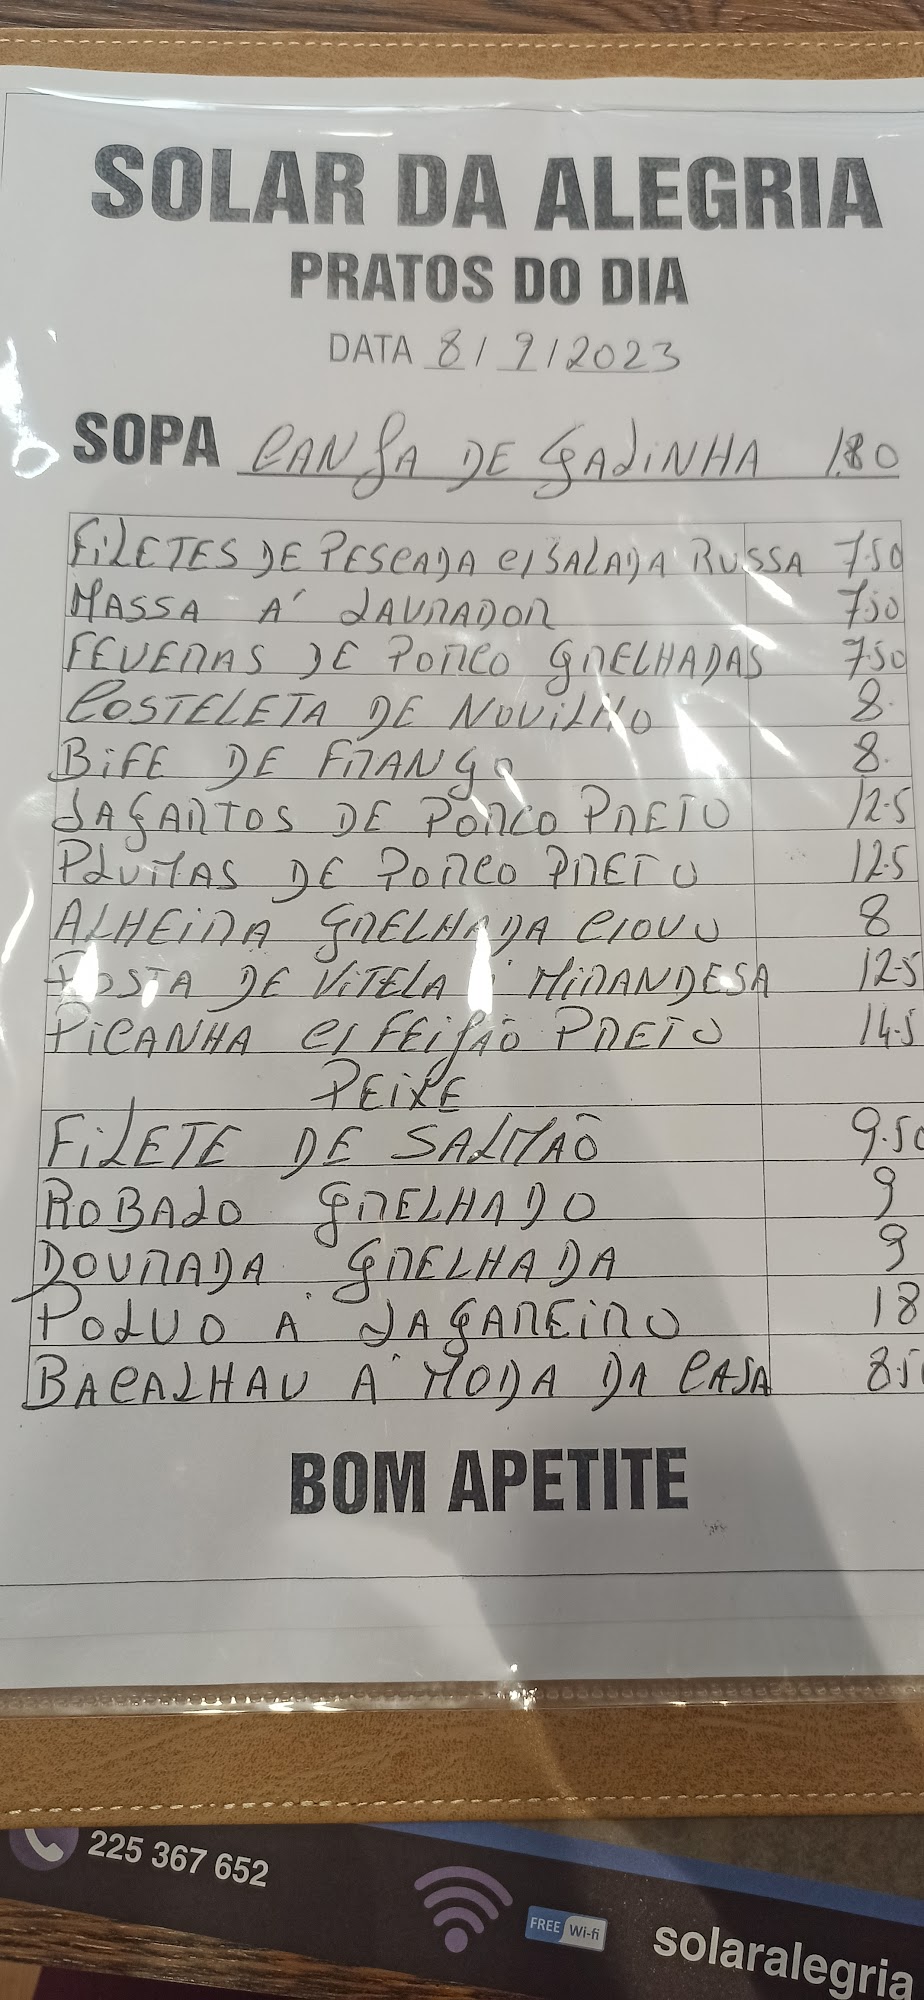 SOLAR DA ALEGRIA
PRATOS DO DIA
DATA 8/9/2023
SOPA CANJA DE GALINHA 1.80
FILETES DE PESCADA C/SALADA RUSSA 7.50
MASSA A' LAVRADOR 7.50
FEVERAS DE PORCO GRELHADAS 7.50
COSTELETA DE NOVILHO 8.
BIFE DE FRANGO 8.
LAGARTOS DE PORCO PRETO 12.5
PLUMAS DE PORCO PRETO 12.5
ALHEIRA GRELHADA C/OVO 8
POSTA DE VITELA ' MIRANDESA 12.5
PICANHA C/ FEIJÃO PRETO 14.5
PEIXE
FILETE DE SALMÃO 9.50
ROBALO GRELHADO 9
DOURADA GRELHADA 9
POLVO A' LAGAREIRO 18
BACALHAU A' MODA DA CASA 8.5
BOM APETITE
225 367 652
FREE Wi-fi
solaralegria